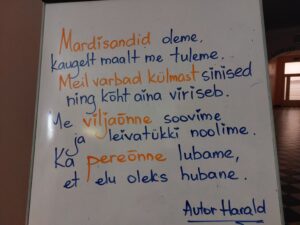 Mardisandid oleme,
kaugelt maalt me tuleme.
Meil varbad külmast sinised
ning kõht aina viriseb.
Me viljaõnne soovime
ja leivatükki noolime.
Ka pereõnne lubame,
et elu oleks hubane.
Autor Harald